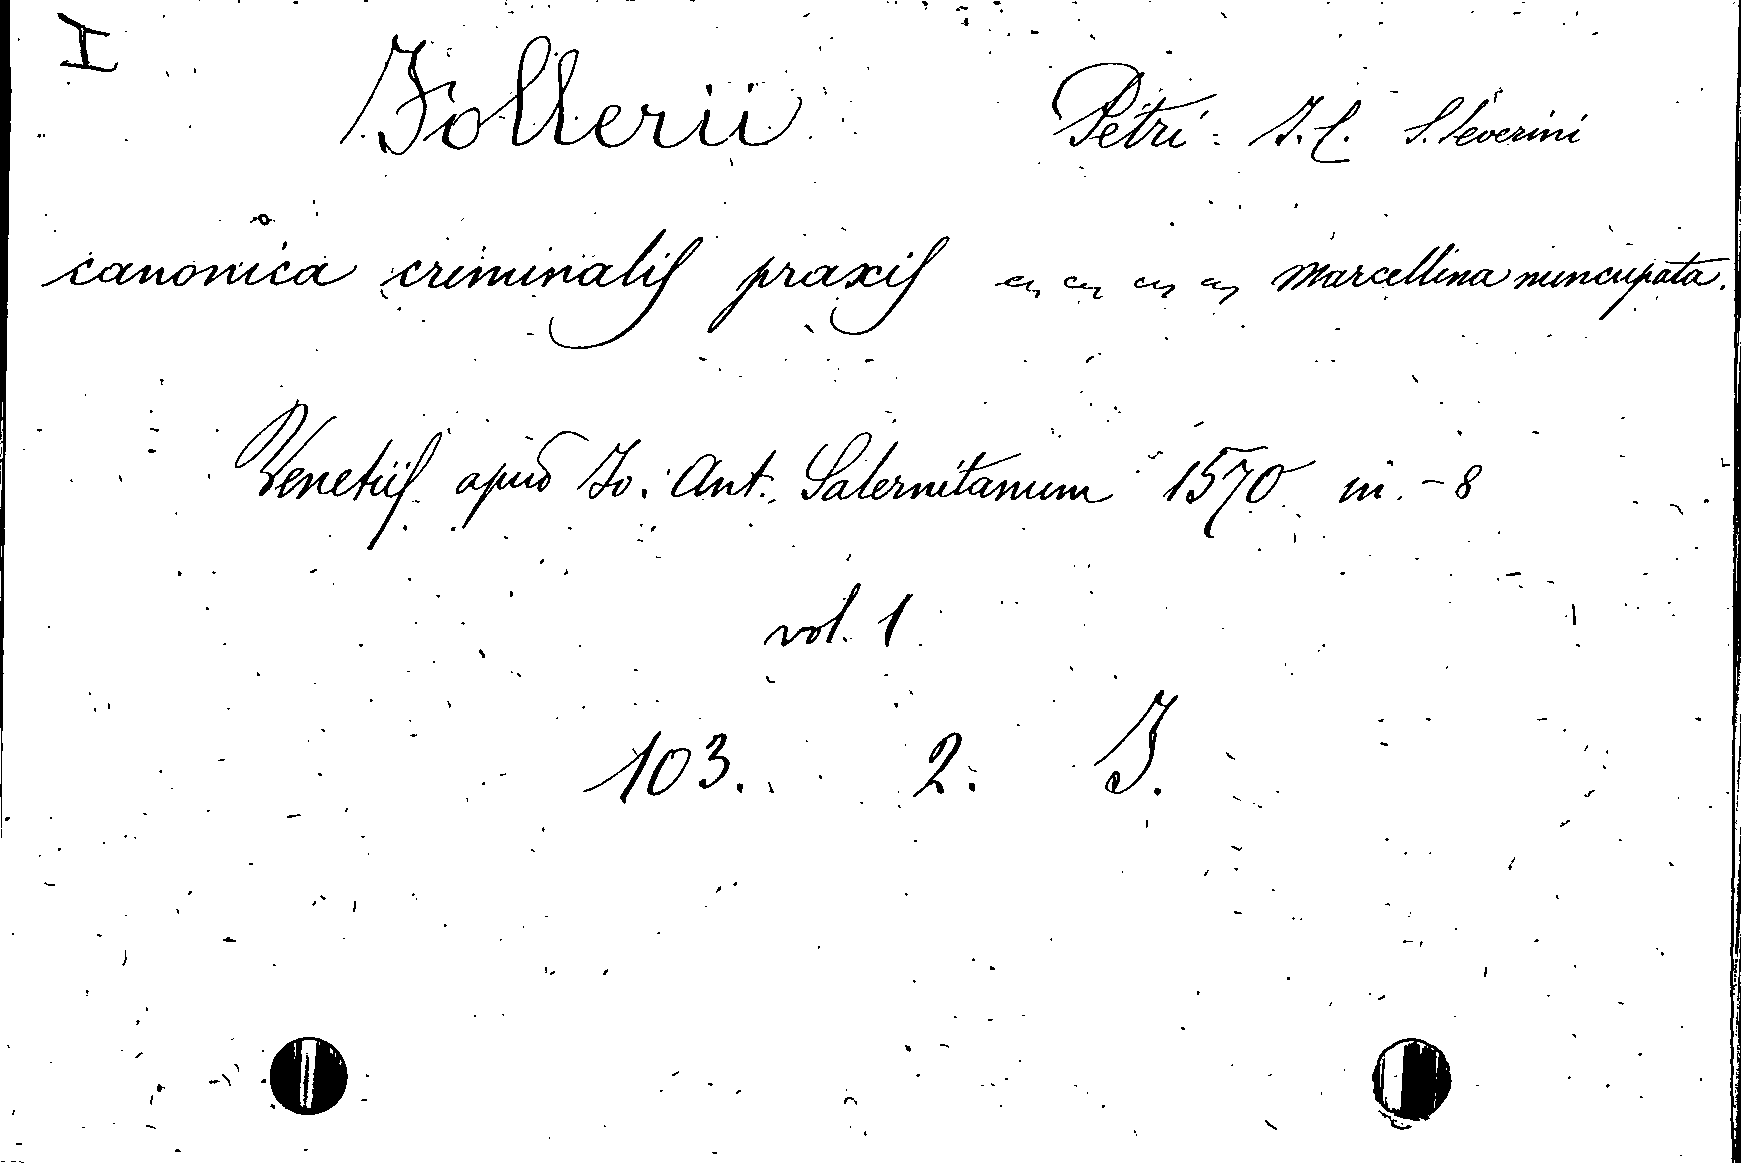 I
Follerii Petri J. C. S. Severini
canonica criminalis praxis Marcellina nuncupata.
Venetiis apud Jo: Ant. Salernitanum 1570 in-8
vol. 1
103. 2. J.